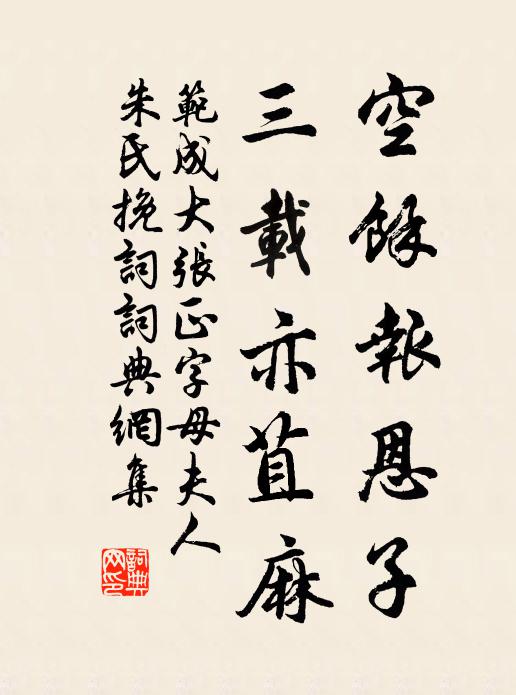 空餘報恩子
三載亦苴麻
範成大張正字母夫人
朱氏挽詞詞典網集
詞典
网印